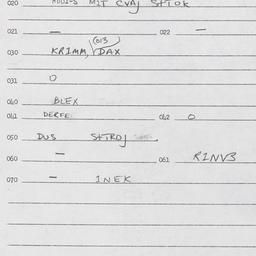 020 MIT CVAJ SFTOK
021 — 022 —
013
030 KRIMM, DAX
031 O
040 BLEX
041 DERFE 042 O
050 DUS SFTROJ
060 — 061 RINV3
070 — INEK